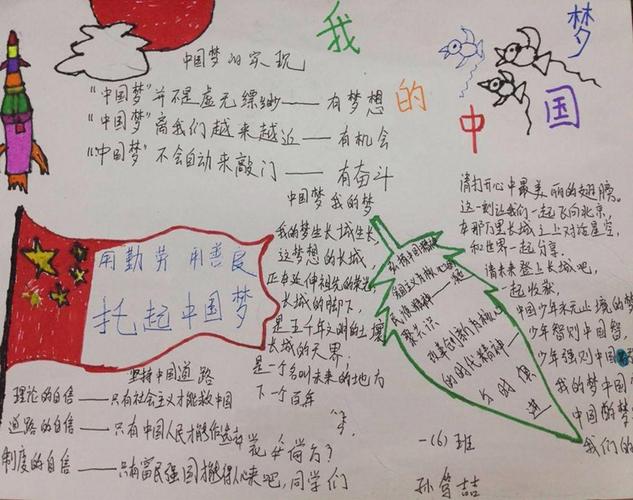 我的中国梦
中国梦的实现
“中国梦”并不是虚无缥缈——有梦想
“中国梦”离我们越来越近——有机会
“中国梦”不会自动来敲门——有奋斗
中国梦 我的梦
我的梦生长城生长,
这梦想的长城,
正在延伸祖先的荣光
长城的脚下,
是五千年文明的土壤
长城的天界,
是一个名叫未来的地方
下一个百年
用勤劳 用善良
托起中国梦
坚持中国道路
理论的自信——只有社会主义才能救中国
道路的自信——只有中国人民才能
制度的自信——只有富民强国才能得人心
来吧,同学们
弘扬中国精神
民族精神——
聚共识
改革创新为核心
的时代精神——
与时俱
进
请打开心中最美丽的翅膀。
这一刻让我们一起飞向北京,
在那万里长城之上对话星空,
和世界一起分享。
请未来登上长城吧,
一起收获
中国少年永无止境的梦
少年智则中国智,
少年强则中国
我的梦中国
中国的梦
我们的
一(6)班
孙
喆